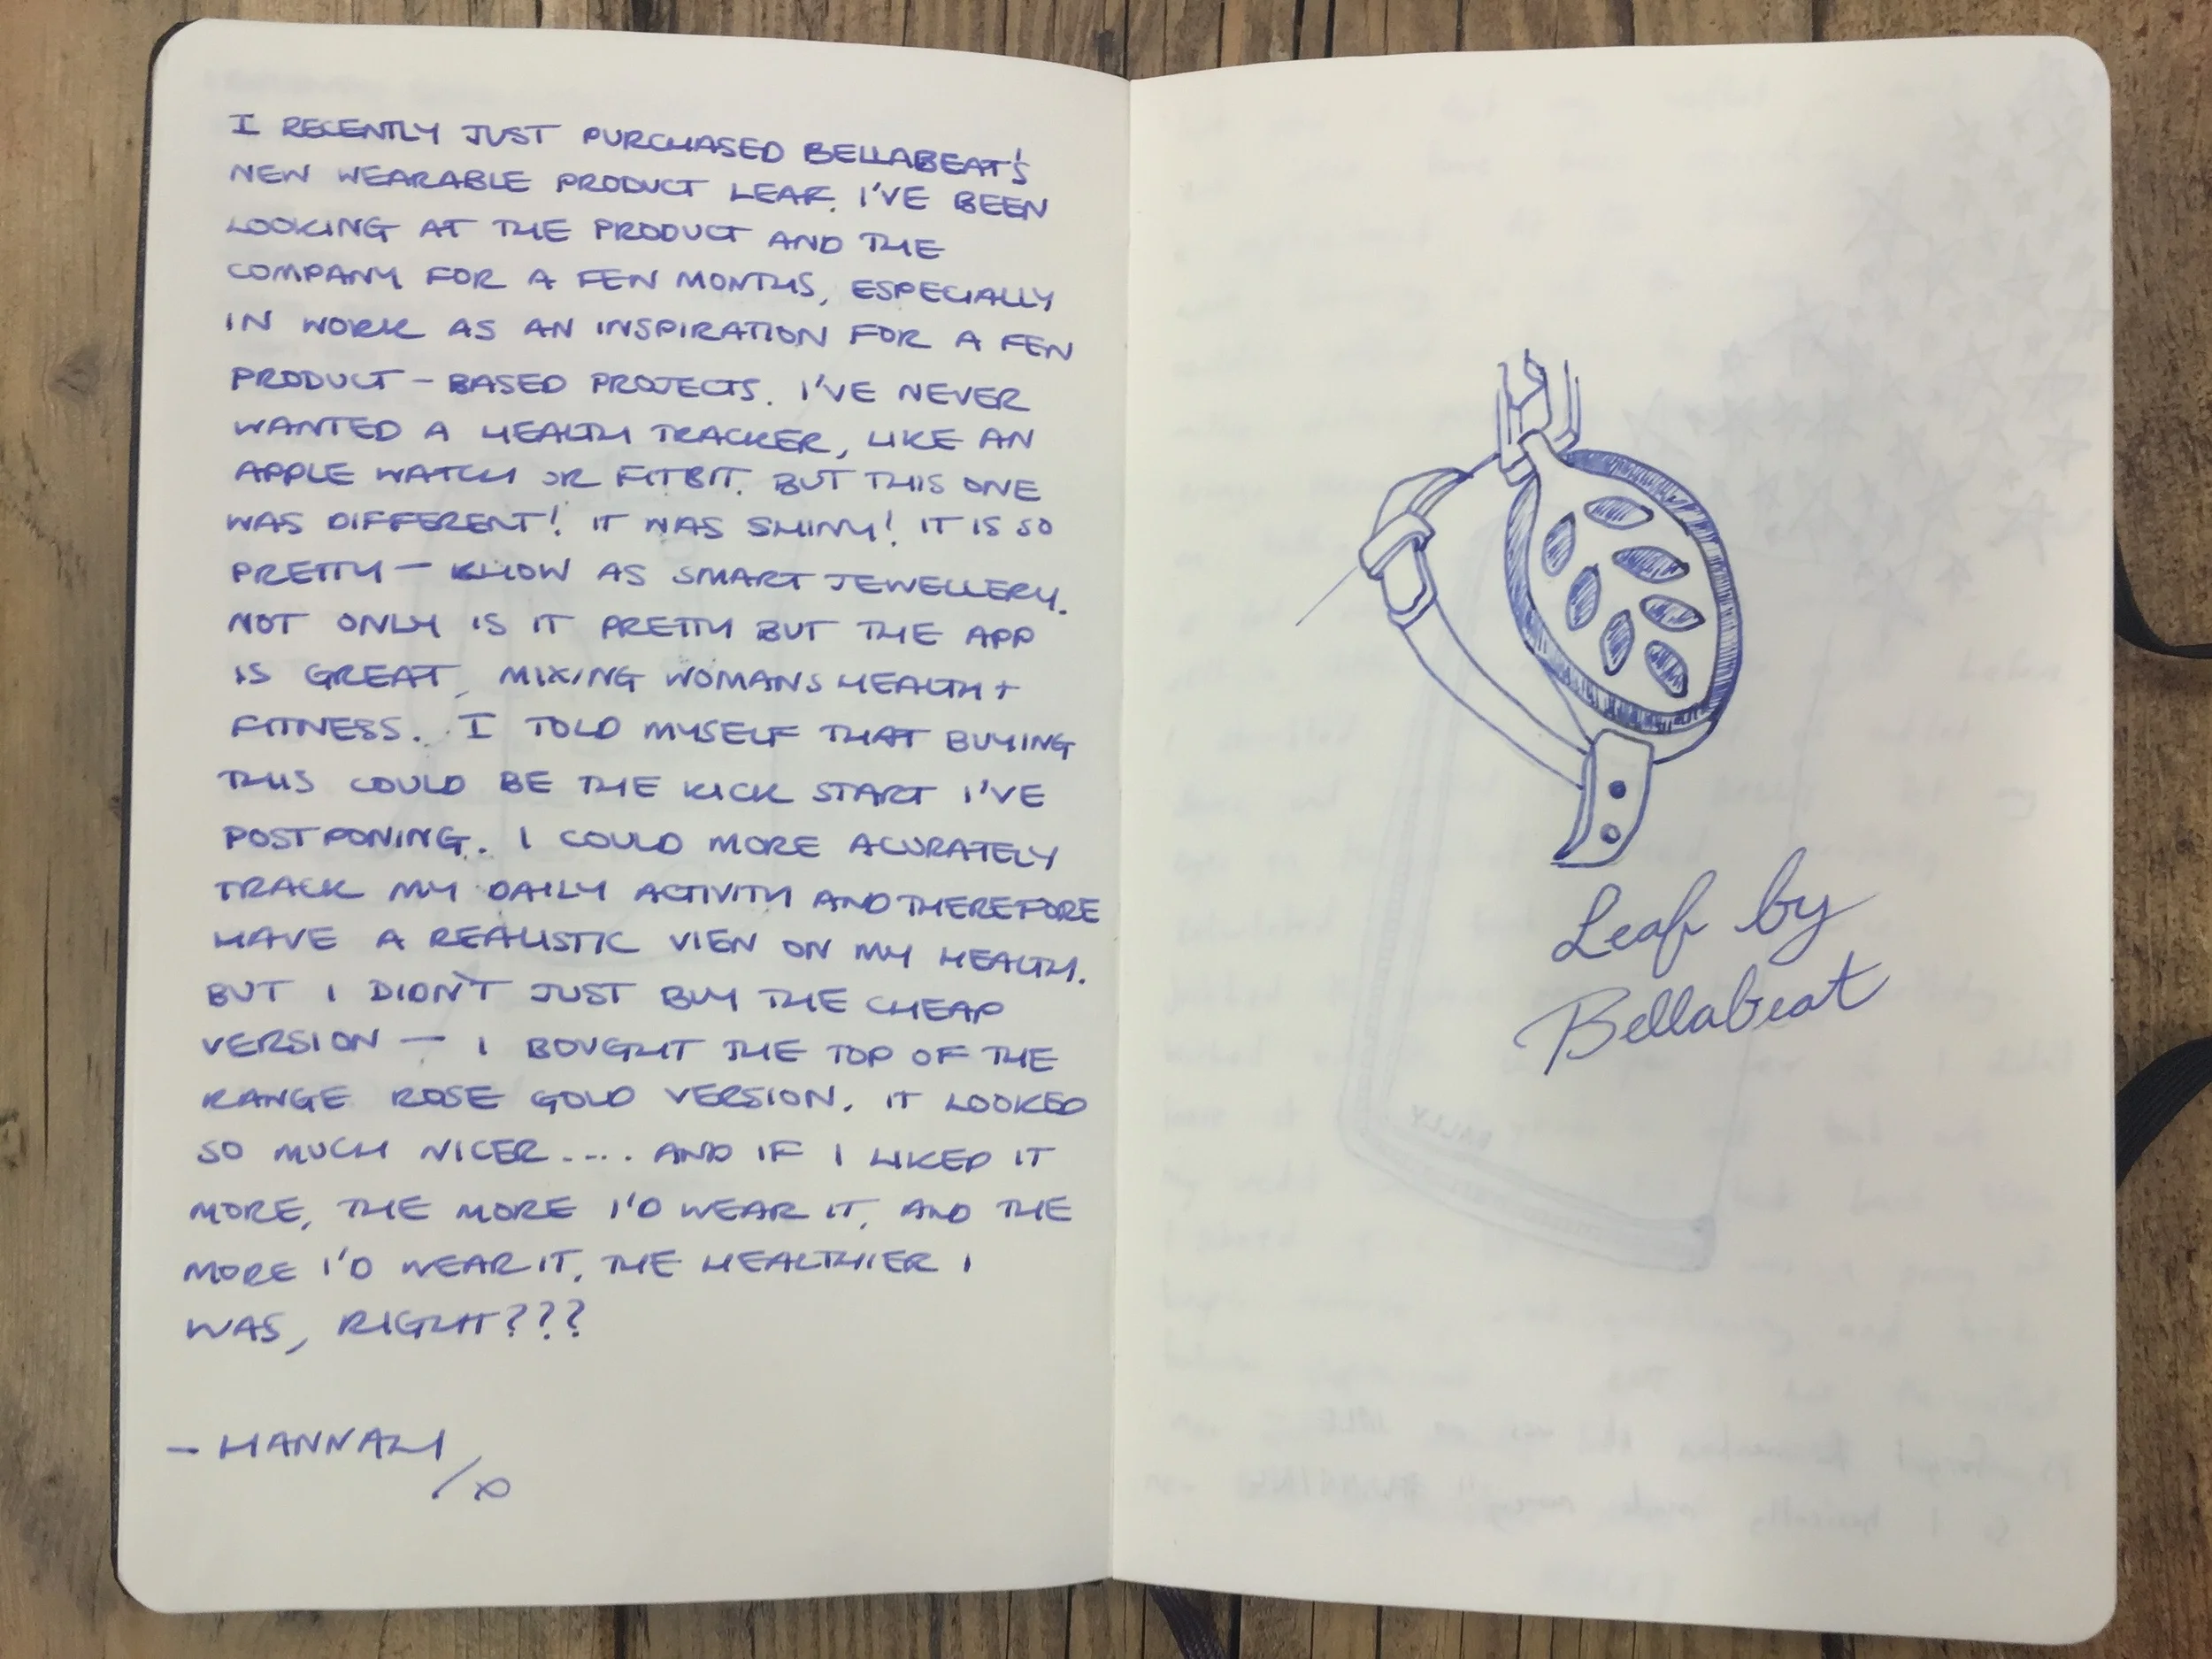 I RECENTLY JUST PURCHASED BELLABEAT'S
NEW WEARABLE PRODUCT LEAF. I'VE BEEN
LOOKING AT THE PRODUCT AND THE
COMPANY FOR A FEW MONTHS, ESPECIALLY
IN WORK AS AN INSPIRATION FOR A FEW
PRODUCT - BASED PROJECTS. I'VE NEVER
WANTED A HEALTH TRACKER, LIKE AN
APPLE WATCH OR FITBIT. BUT THIS ONE
WAS DIFFERENT! IT WAS SHINY! IT IS SO
PRETTY - KNOW AS SMART JEWELLERY.
NOT ONLY IS IT PRETTY BUT THE APP
IS GREAT, MIXING WOMANS HEALTH +
FITNESS. I TOLD MYSELF THAT BUYING
THIS COULD BE THE KICK START I'VE
POSTPONING. I COULD MORE ACURATELY
TRACK MY DAILY ACTIVITY AND THEREFORE
HAVE A REALISTIC VIEW ON MY HEALTH.
BUT I DIDN'T JUST BUY THE CHEAP
VERSION - I BOUGHT THE TOP OF THE
RANGE ROSE GOLD VERSION. IT LOOKED
SO MUCH NICER.... AND IF I LIKED IT
MORE, THE MORE I'D WEAR IT, AND THE
MORE I'D WEAR IT, THE HEALTHIER I
WAS, RIGHT???
- HANNAH
/x
Leaf by
Bellabeat